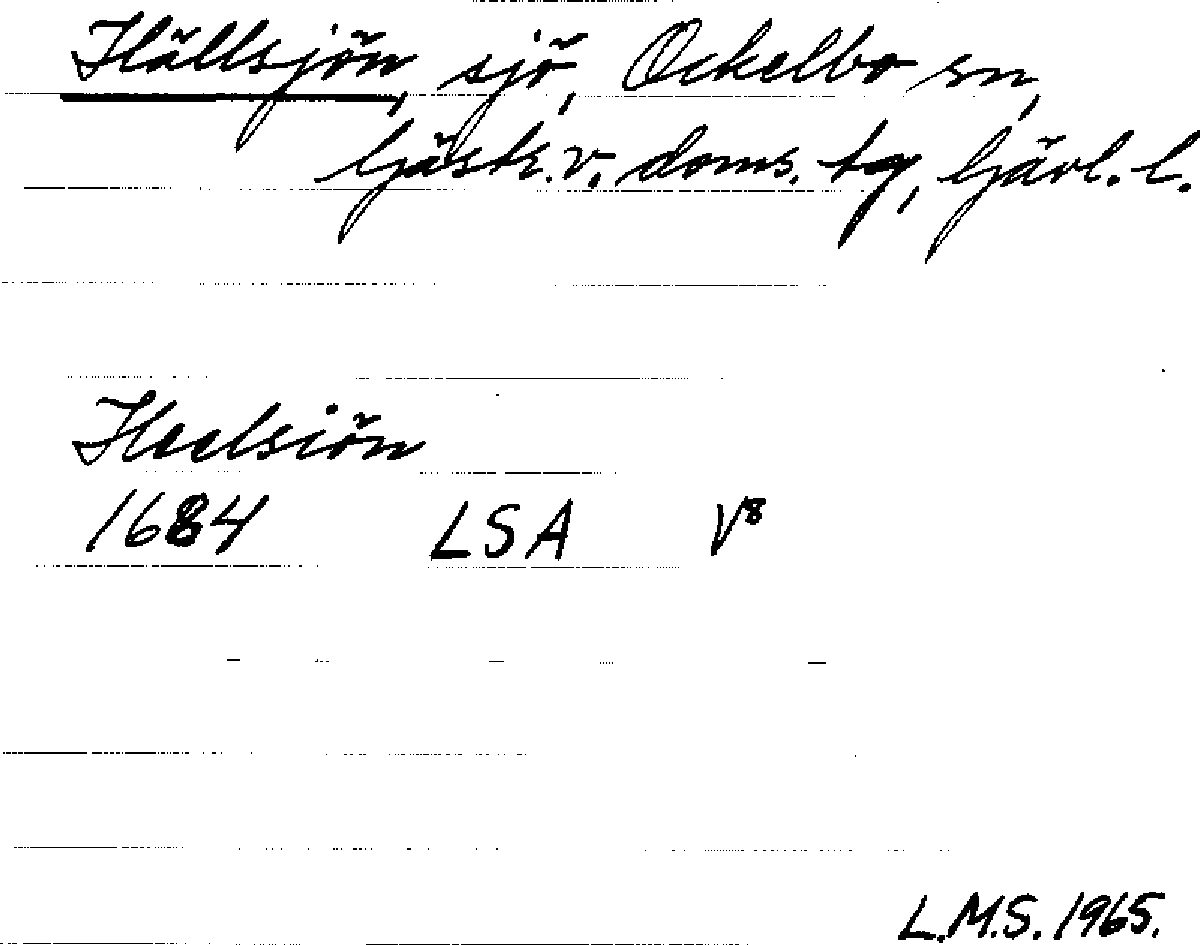 Hällsjön, sjö, Ockelbo sn,
Gästr. v. doms. tg, Gävl. l.
Heelsiön
1684 LSA V8
L.M.S. 1965.